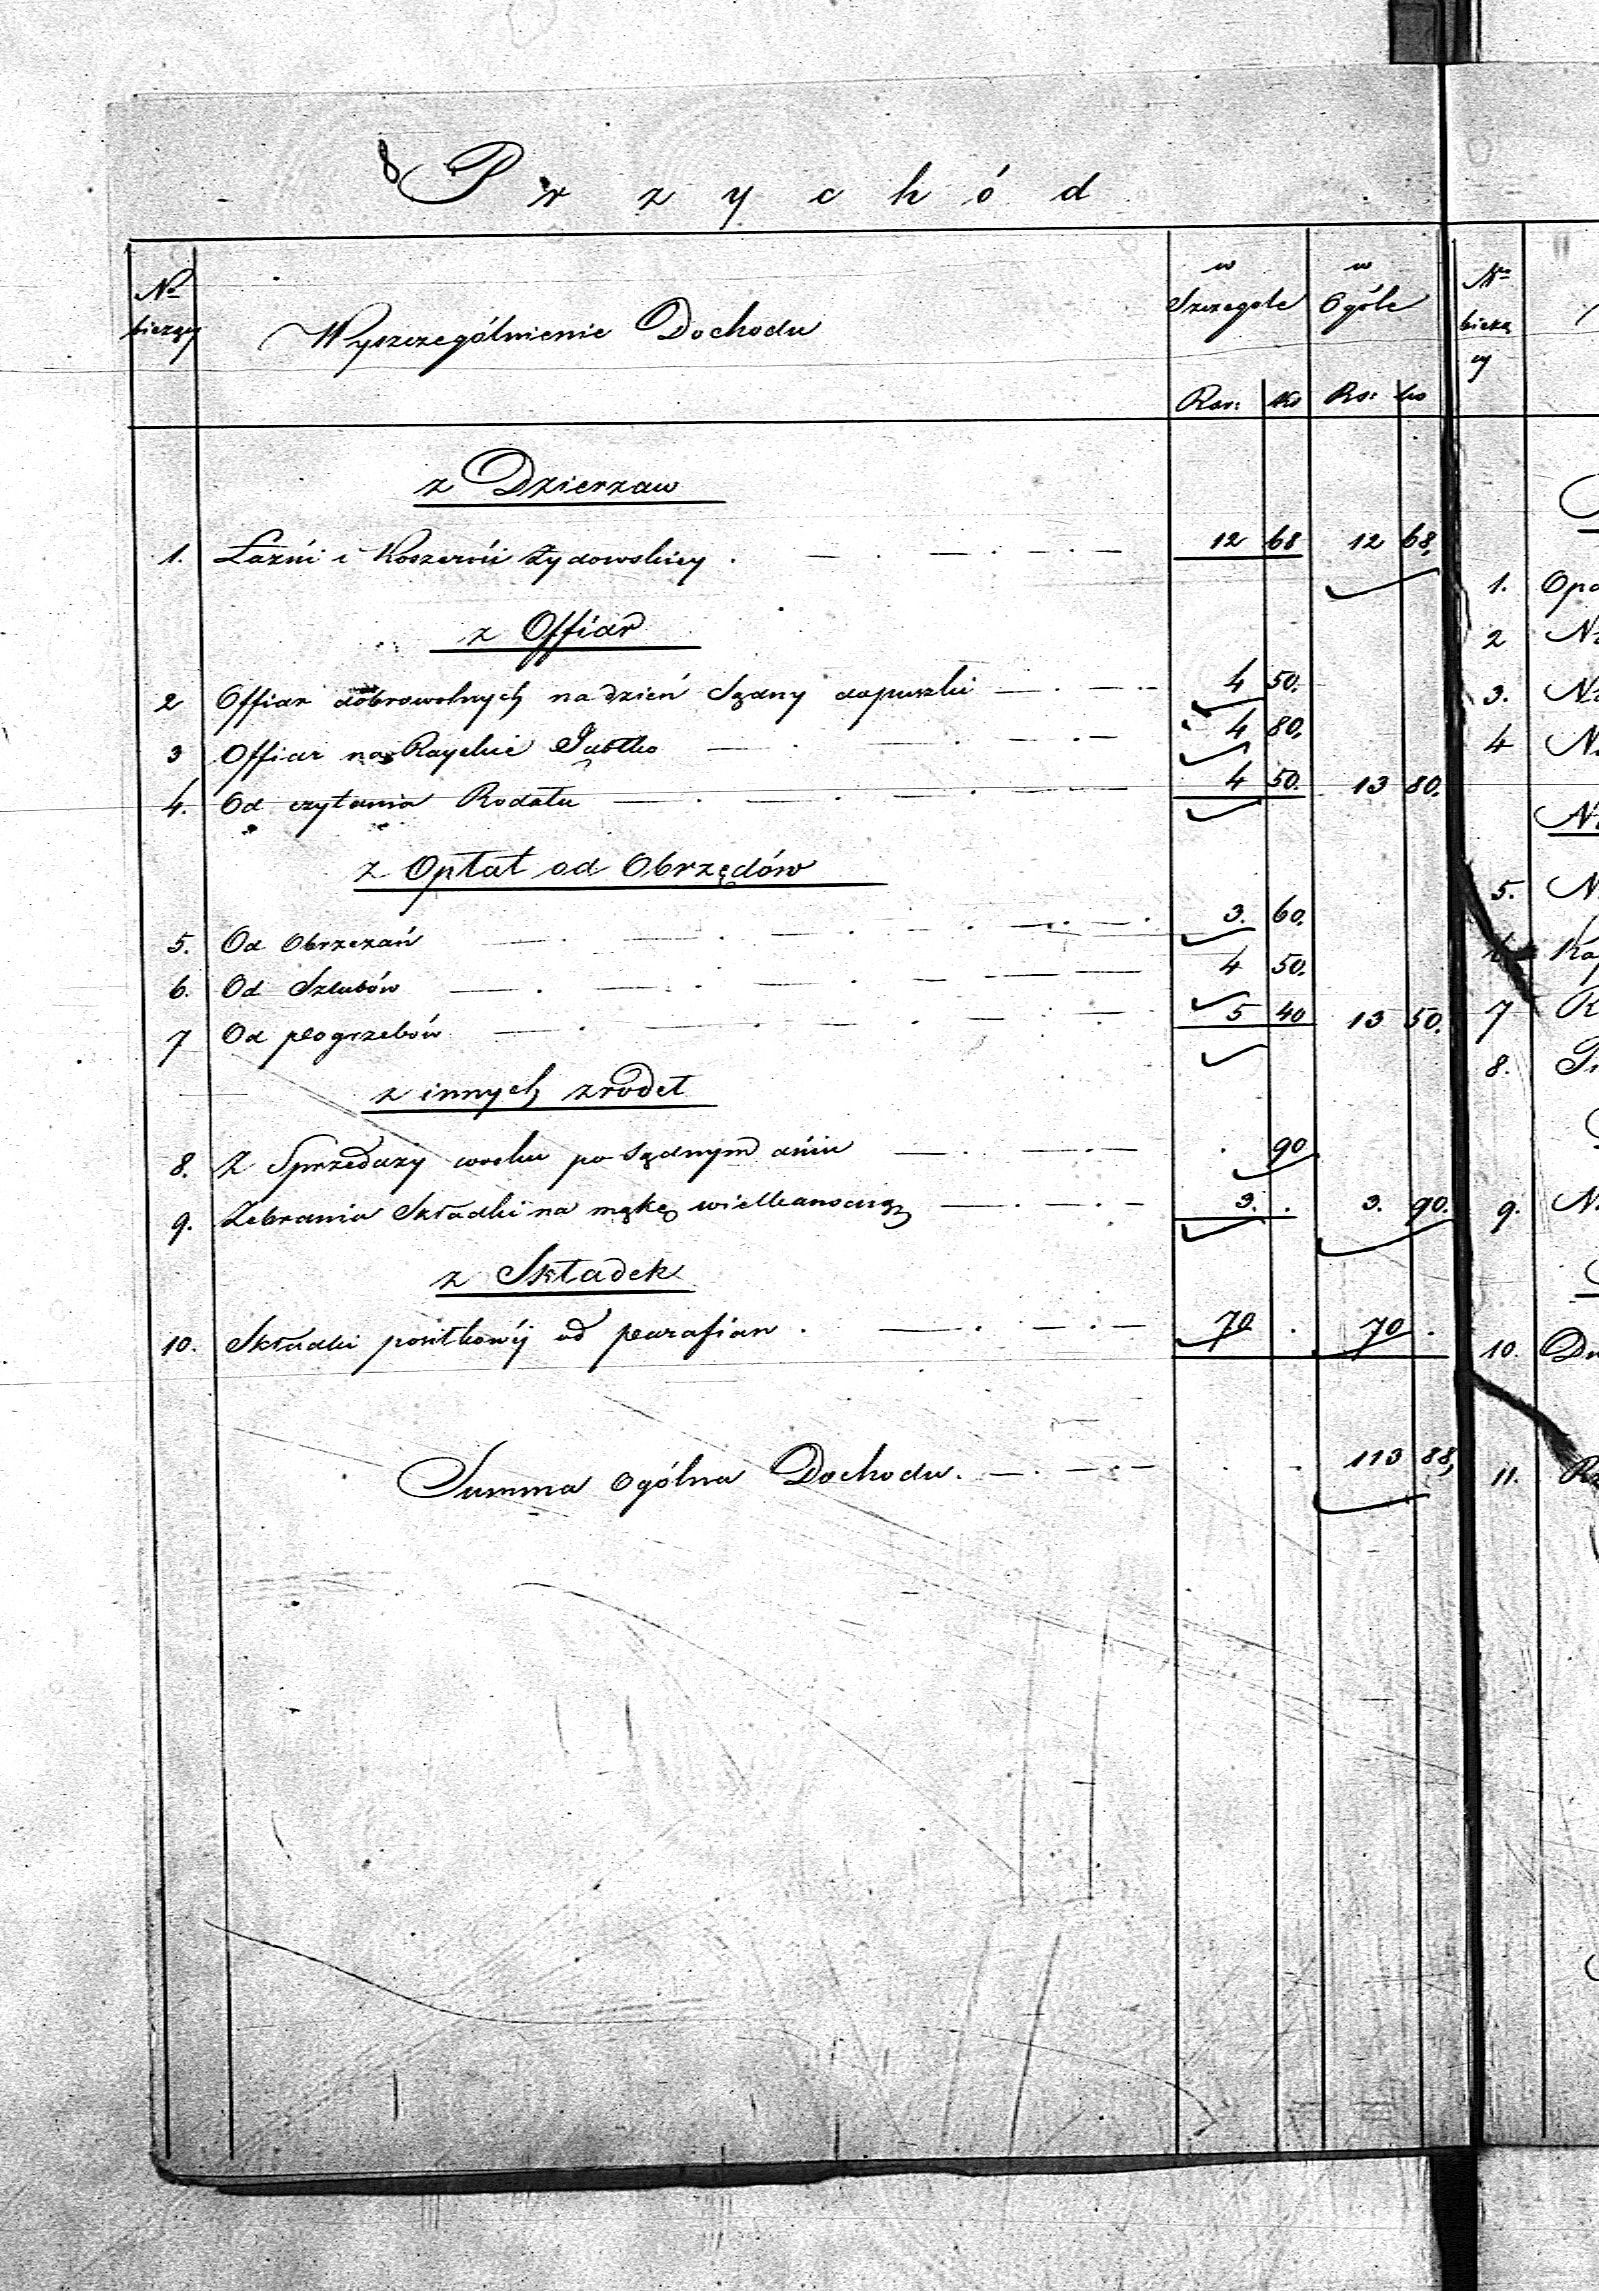 8 Przychód
No bieżący
Wyszczególnienie Dochodu
w Szczegole
w Ogóle
No bieżą cy
Rsr: Ko Rs: ko
z Dzierzaw
1. Łaźni i Koszerni żydowskiey . 12 68 12 68,
z Offiar
2 Offiar dobrowolnych na dzień Sądny do puszki 4 50.
3 Offiar na Rayskie Jabłko 4 80,
4. Od czytania Rodału 4 50. 13 80.
z Opłat od Obrzędów
5. Od Obrzezań 3. 60.
6. Od Szlubów 4 50.
7 Od pogrzebów 5 40 13 50.
z innych zrodeł
8. Z Sprzedazy wosku po Sądnym dniu . 90
9. Zebrania Składki na mąkę wielkanocną 3. . 3. 90.
z Składek
10. Składki positkowéj od parafian . 70 . 70 .
Summa Ogólna Dochodu. . . 113 88,
1. Opa
2
3.
4
5.
7
8.
9.
10.
11.